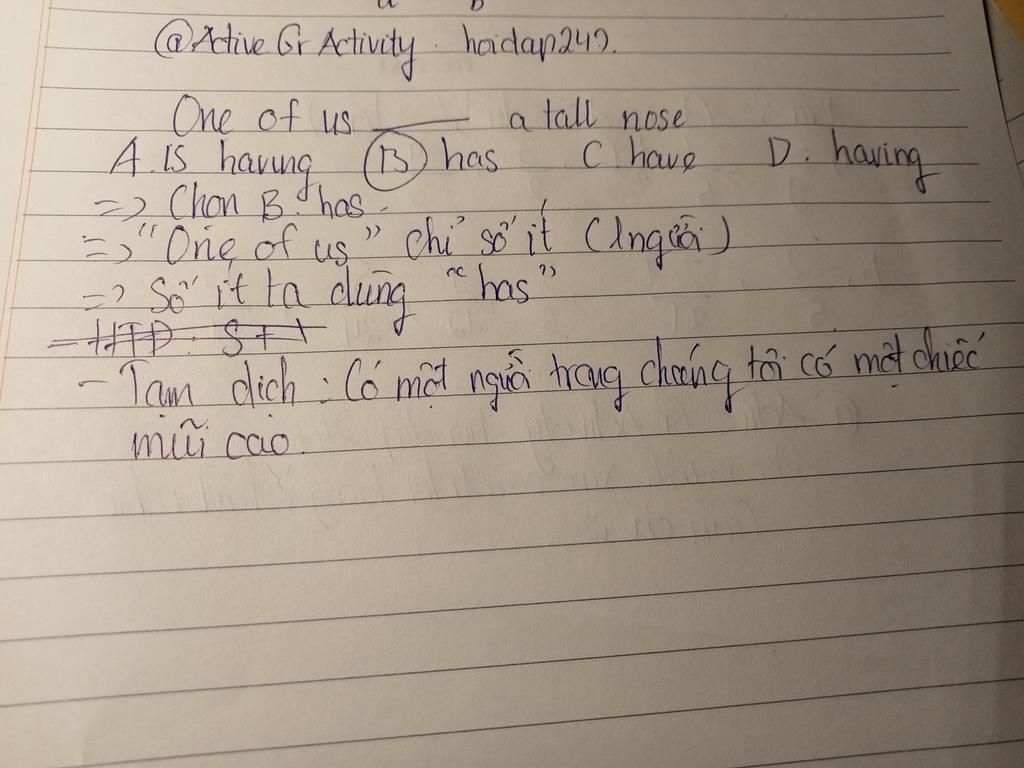 @Active Gr Activity . hoidap247.
One of us ____ a tall nose
A. is having B has C have D. having
=> Chọn B. has.
=> "One of us" chỉ số ít (1 người)
=> Số ít ta dùng "has"
- HTD : S + 1
- Tạm dịch : Có một người trong chúng tôi có một chiếc
mũi cao.